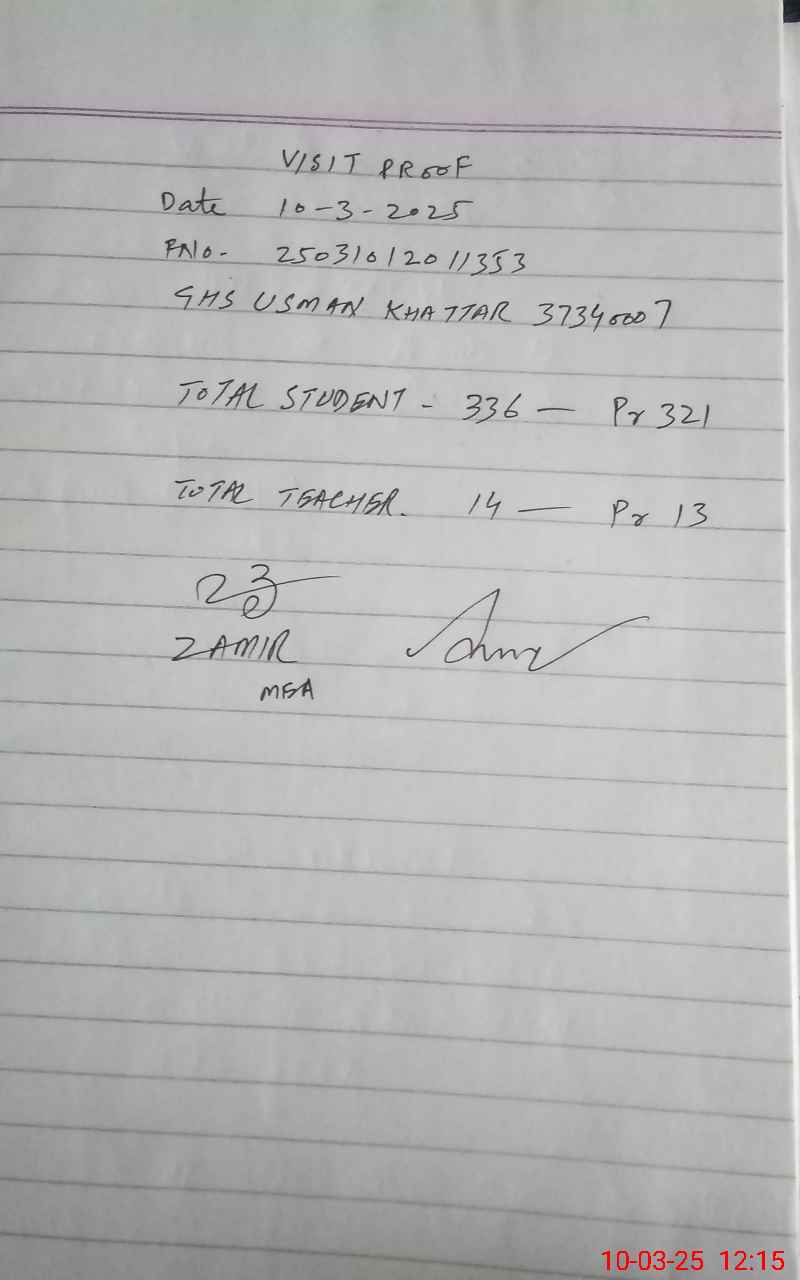 VISIT PROOF
Date 10-3-2025
FNo. 25031012011353
GHS USMAN KHATTAR 37340007
TOTAL STUDENT - 336 — Pr 321
TOTAL TEACHER. 14 — Pr 13
ZAMIR
MEA
10-03-25 12:15